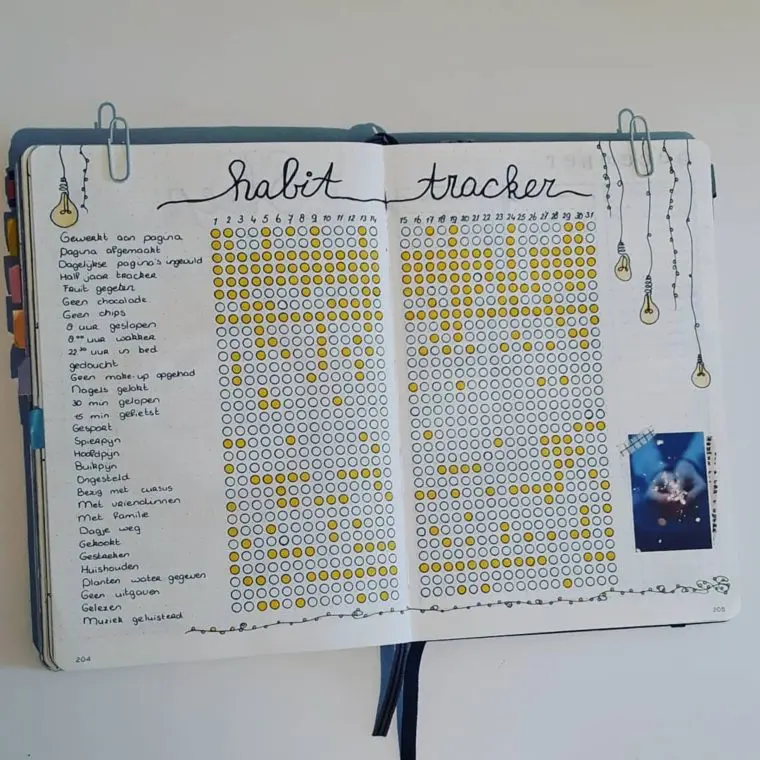 habit tracker
1 2 3 4 5 6 7 8 9 10 11 12 13 14 15 16 17 18 19 20 21 22 23 24 25 26 27 28 29 30 31
Gewerkt aan pagina
Pagina afgemaakt
Dagelijkse pagina's ingevuld
Half jaar tracker
Fruit gegeten
Geen chocolade
Geen chips
8 uur geslapen
8⁰⁰ uur wakker
22³⁰ uur in bed
gedoucht
Geen make-up opgehad
Nagels gelakt
30 min gelopen
15 min gefietst
Gesport
Spierpijn
Hoofdpijn
Buikpijn
Ongesteld
Bezig met cursus
Met vriendinnen
Met familie
Dagje weg
Gekookt
Gestreken
Huishouden
Planten water gegeven
Geen uitgaven
Gelezen
Muziek geluisterd
204
205